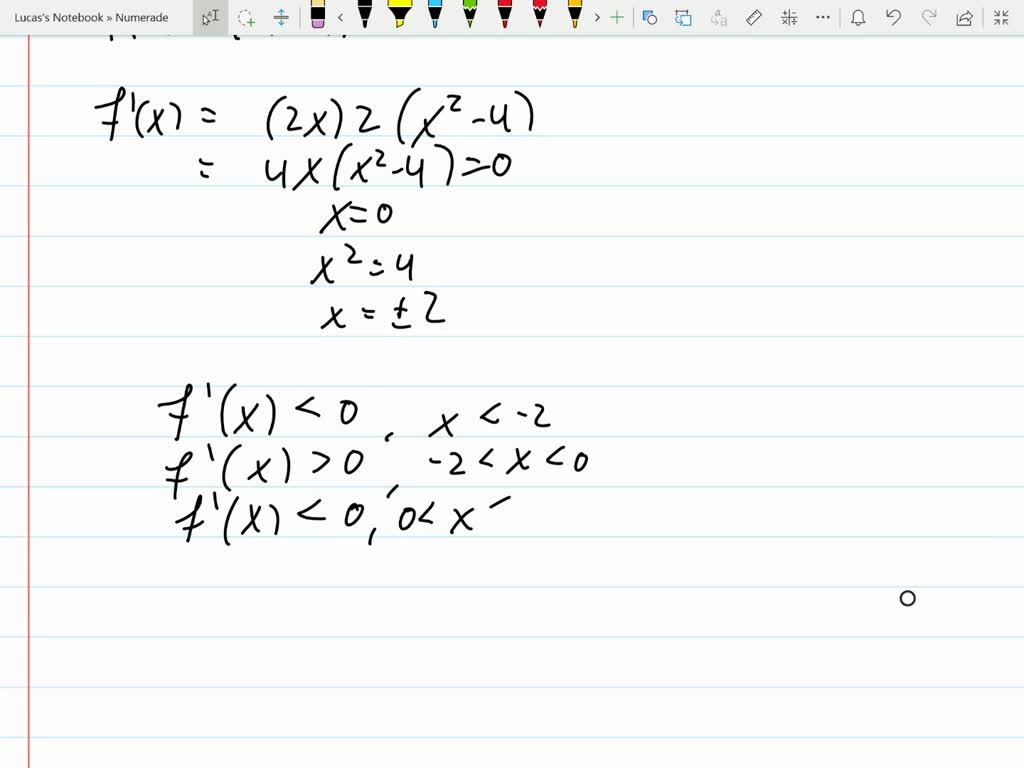 Lucas's Notebook » Numerade
f'(x) = (2x) 2 (x² - 4)
= 4x(x² - 4) = 0
x = 0
x² = 4
x = ± 2
f'(x) < 0, x < -2
f'(x) > 0, -2 < x < 0
f'(x) < 0, 0 < x